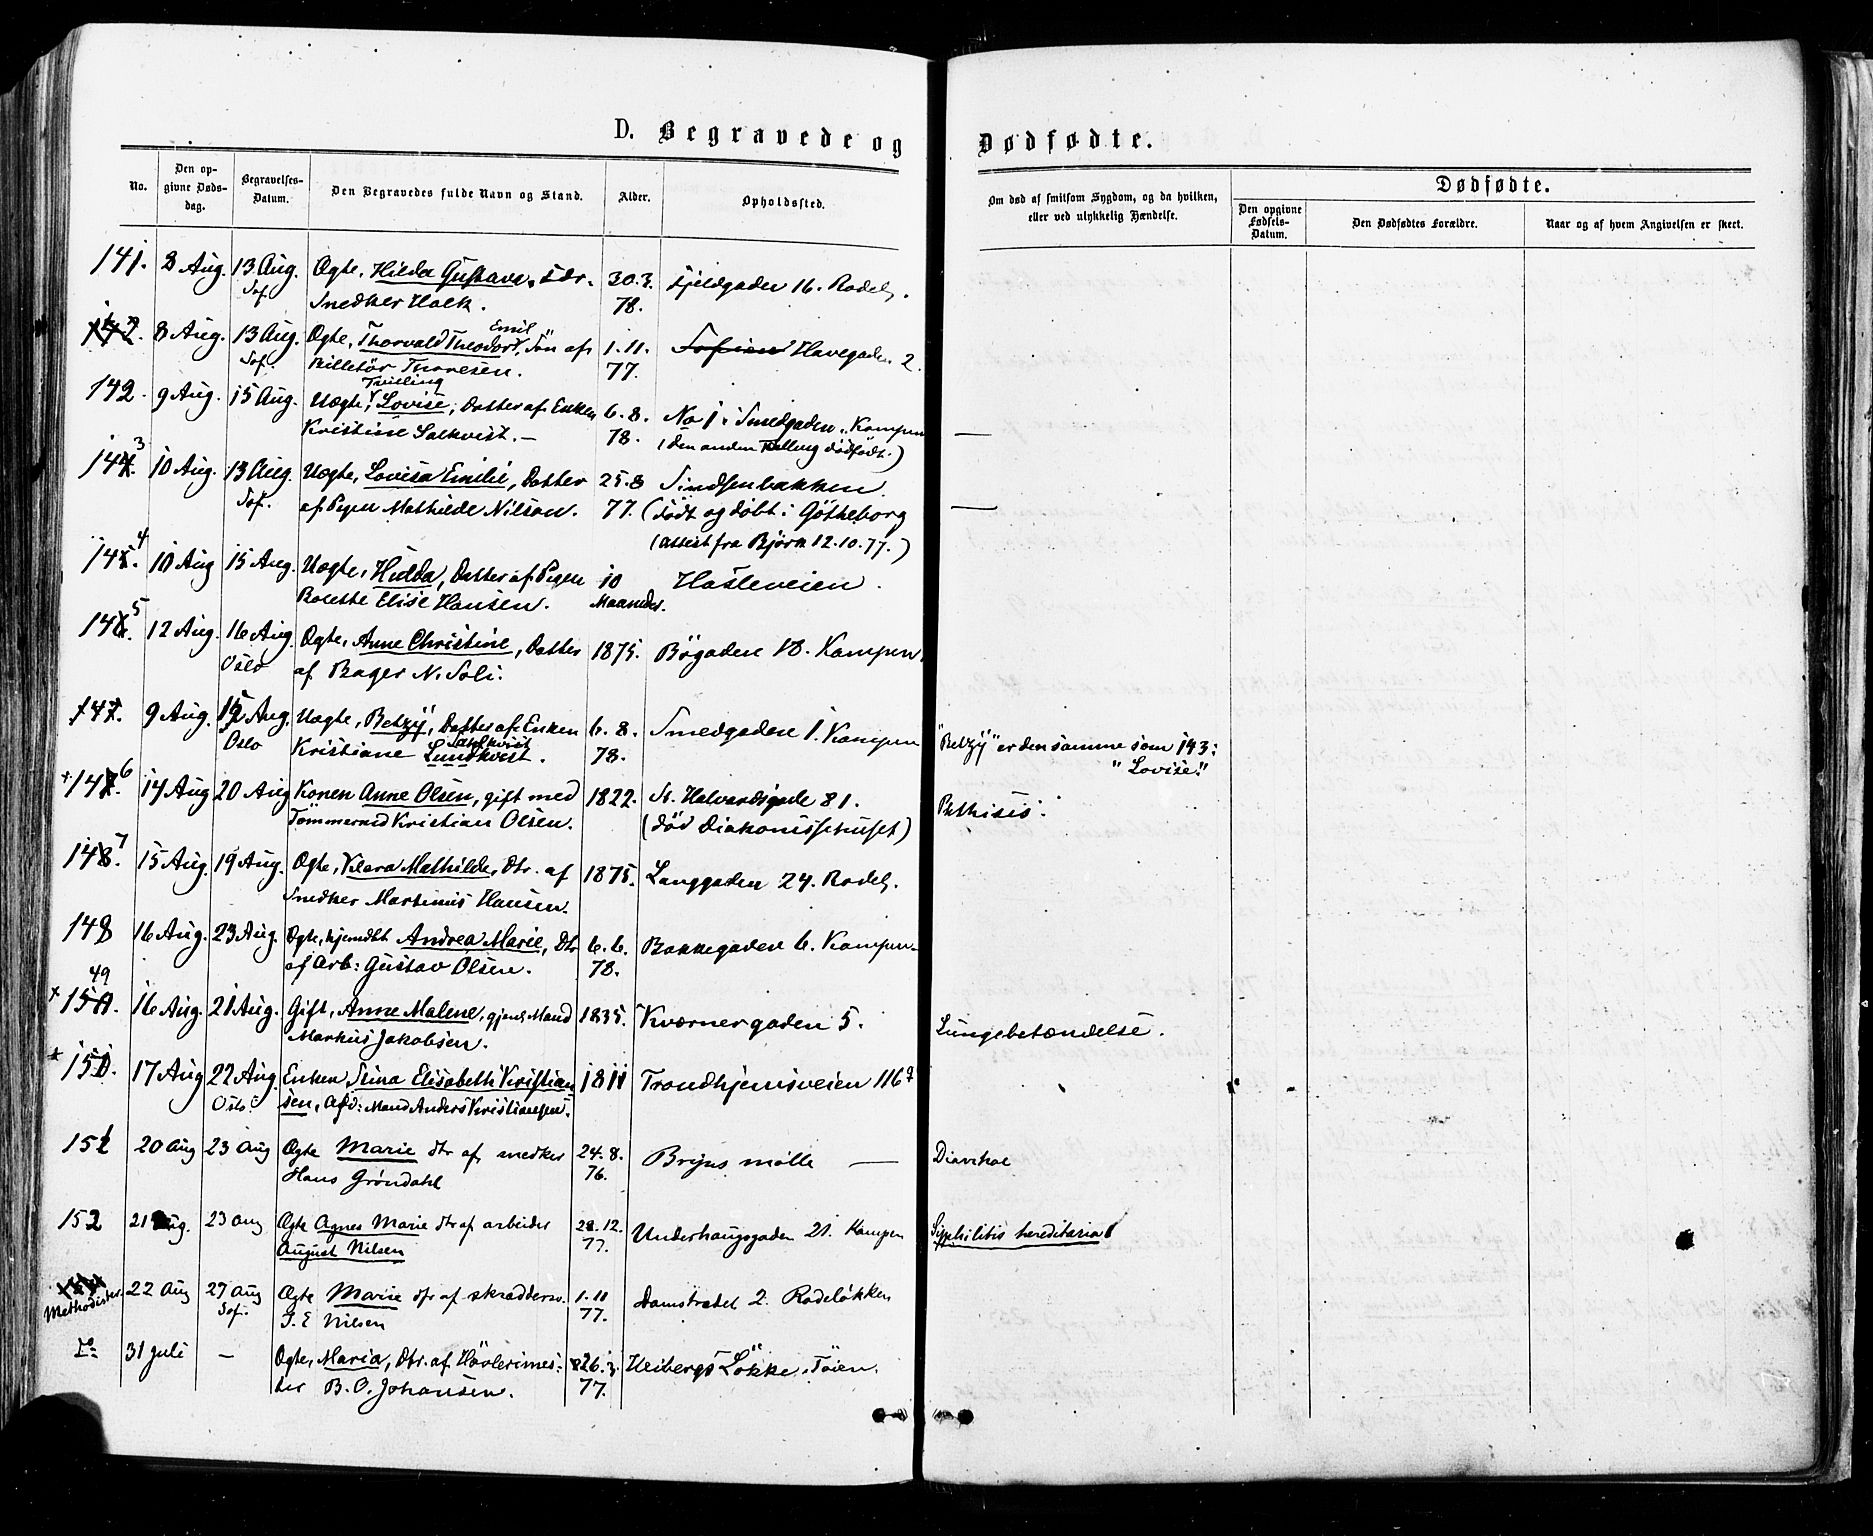 D. Begravede og Dødfødte.
No.
Den op-
givne Døds-
dag.
Begravelses-
Datum.
Den Begravedes fulde Navn og Stand.
Alder.
Opholdssted.
Om død af smitsom Sygdom, og da hvilken,
eller ved ulykkelig Hændelse.
Dødfødte.
Den opgivne
Fødsels-
Datum.
Den Dødfødtes Forældre.
Naar og af hvem Angivelsen er skeet.
141. 8 Aug. 13 Aug. Ægte, Hilda Gustava, Dtr. 30.3. Fjeldgaden 16. Rodel.
Sof. Snedker Holk. 78.
142. 8 Aug. 13 Aug. Ægte, Thorvald Theodor Emil, Sön af 1.11. Sofien Havegaden 2.
Sof. Billetör Thoresen. 77.
Tvilling
142. 9 Aug. 15 Aug. Uægte, Lovise, Datter af Enken 6.8. No 1 i Smedgaden, Kampen —
Kristine Salkvist. — 78. (den anden Tvilling dödfödt.)
3
144. 10 Aug. 13 Aug. Uægte, Lovisa Emilie, Datter 25.8 Sindsenbakken. —
Sof. af Pigen Mathilde Nilson. 77. (födt og döbt i Götheborg
(attest fra Björn 12.10.77.)
4
145. 10 Aug 15 Aug. Uægte, Hulda, Datter af Pigen 10 Hasleveien.
Bolette Elise Hansen. Maaneder.
5
146. 12 Aug. 16 Aug. Ægte, Anne Christine, Datter 1875. Bögaden 18. Kampen.
Oslo af Bager N. Soli.
147. 9 Aug. 15 Aug. Uægte, Betzy, Datter af Enken 6.8. Smedgaden 1. Kampen "Betzy" er den samme som 143:
Oslo Kristiane Lundkvist Sahlkvist. 78. "Lovise."
+ 147. 6 14 Aug 20 Aug Konen Anne Olsen, gift med 1822. St. Halvardsgade 81. Pthisis.
Tömmermd Kristian Olsen. (död Diakonissehuset)
7
148. 15 Aug. 19 Aug. Ægte, Klara Mathilde, Dtr. af 1875. Langgaden 24. Rodel.
Snedker Martinius Hansen.
148 16 Aug. 23 Aug. Ægte, hjemdbt Andrea Marie, Dtr 6.6. Bakkegaden 6. Kampen.
af Arb: Gustav Olsen. 78.
49
+ 150. 16 Aug. 21 Aug. Gift, Anne Malene, gjenl. Mand 1835. Kværnergaden 5. Lungebetændelse.
Markus Jakobsen.
+ 150. 17 Aug 22 Aug. Enken Stina Elisabeth Kristian 1811 Trondhjemsveien 116
Oslo sen, Afd: Mand Anders Kristiansen.
151 20 Aug 23 Aug Ægte Marie dtr af snedker 24.8. Bryns mölle — Diarrhoe
Hans Gröndahl 76.
152 21 Aug. 23 Aug Ægte Agnes Marie dtr af arbeider 28.12. Underhaugsgaden 21. Kampen Syphilitis hereditaria
August Nilsen 77.
Methodister. 22 Aug 27 Aug Ægte Marie dtr af skrædders. 1.11 Damstrædet 2. Rodelökken
Sof. S. E Nilsen 77.
Do 31 Juli — Ægte, Maria, Dtr. af Hövlerimes- 26.3. Heibergs Lökke, Töien.
ter B. O. Johansen. 77.